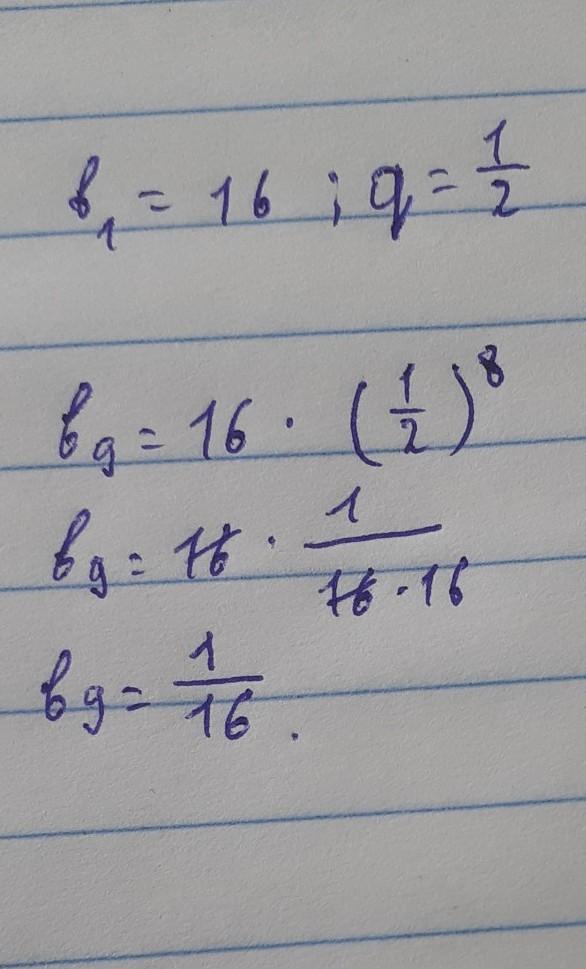 b₁ = 16 ; q = 1/2
b₉ = 16 · (1/2)⁸
b₉ = 16 · 1/(16 · 16)
b₉ = 1/16 .